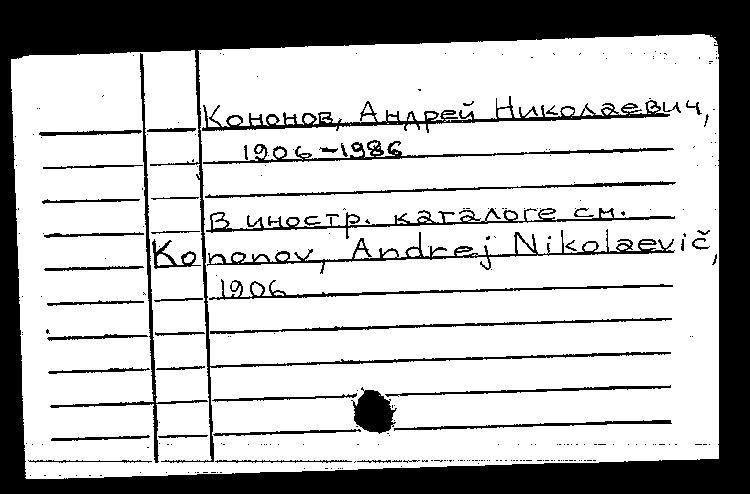 Кононов, Андрей Николаевич,
1906-1986
В иностр. каталоге см.
Kononov, Andrej Nikolaevič,
1906